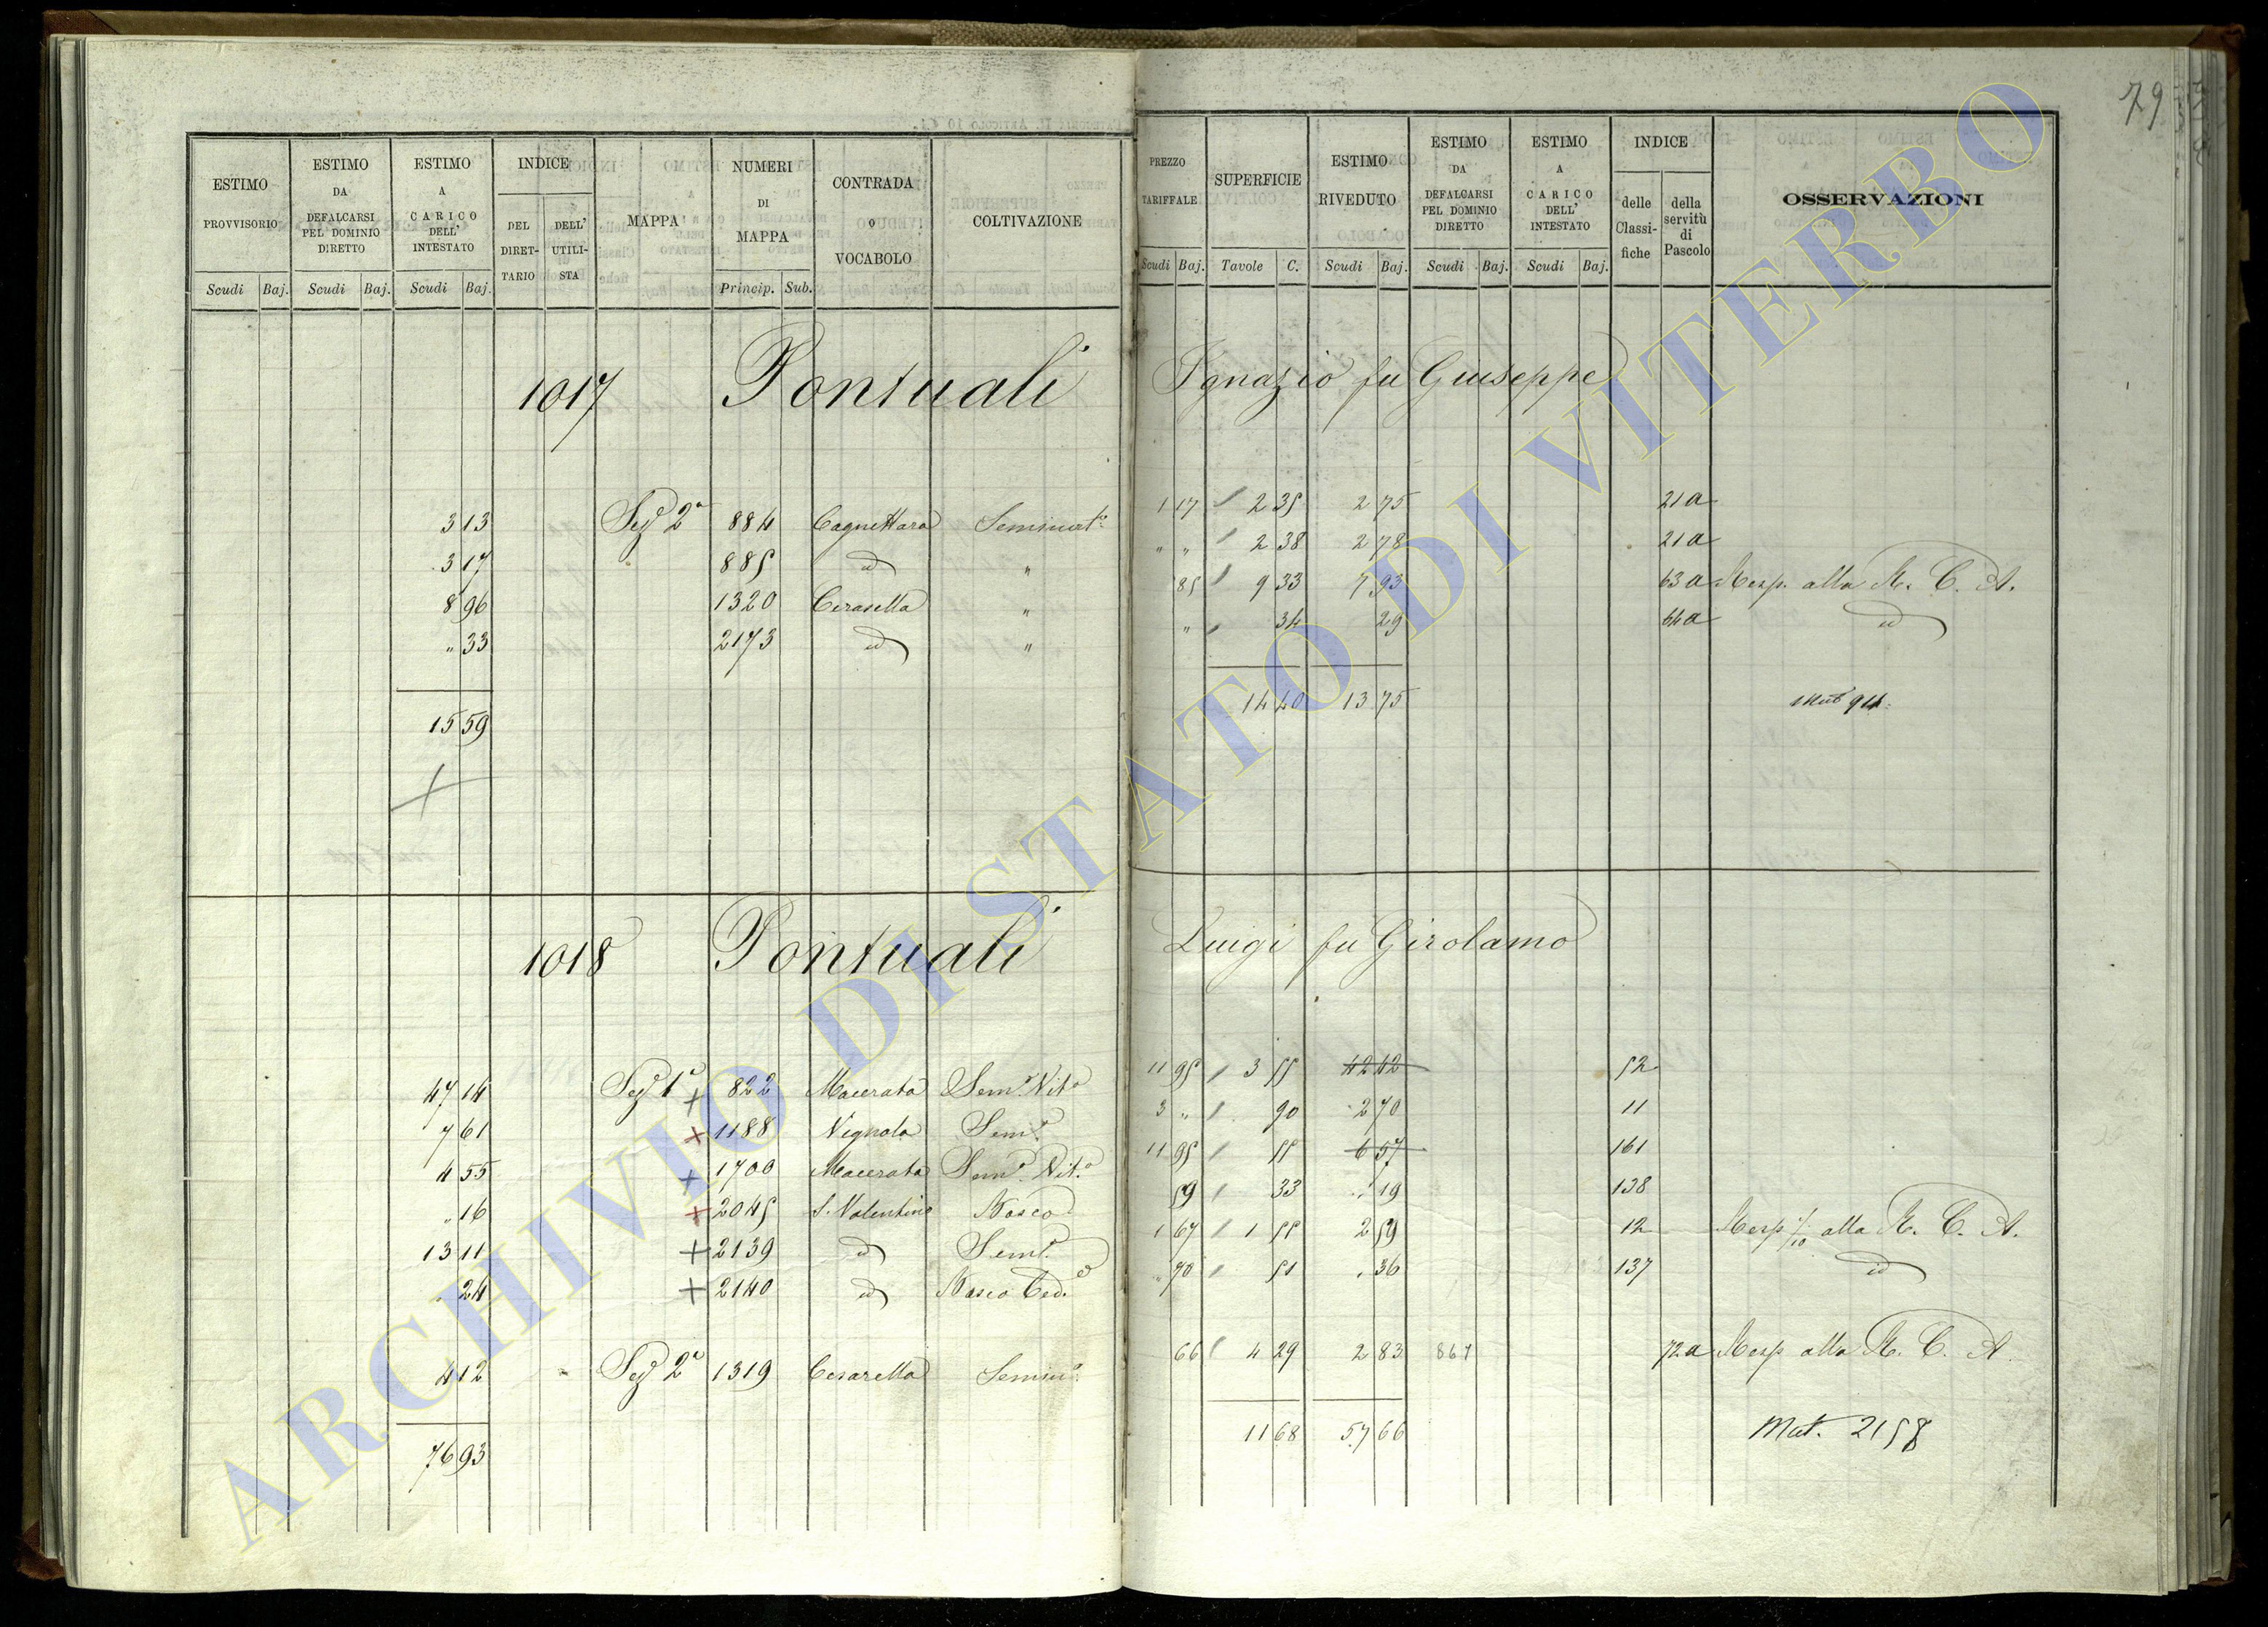 79
ESTIMO PROVVISORIO
ESTIMO DA DEFALCARSI PEL DOMINIO DIRETTO
ESTIMO A CARICO DELL' INTESTATO
INDICE
DEL DIRETTARIO
DELL' UTILISTA
MAPPA
NUMERI DI MAPPA
CONTRADA o VOCABOLO
COLTIVAZIONE
PREZZO TARIFFALE
SUPERFICIE
ESTIMO RIVEDUTO
ESTIMO DA DEFALCARSI PEL DOMINIO DIRETTO
ESTIMO A CARICO DELL' INTESTATO
INDICE
delle Classifiche
della servitù di Pascolo
OSSERVAZIONI
Scudi Baj. Scudi Baj. Scudi Baj. Princip. Sub. Scudi Baj. Tavole C. Scudi Baj. Scudi Baj. Scudi Baj.
1017 Pontuali Ignazio fu Giuseppe
3 13 Sez 2a 884 Cagnettara Seminato 1 17 2 35 2 75 21a
3 17 885 id " " " 2 38 2 78 21a
8 96 1320 Cerasella " 85 9 33 7 93 63a Resp. alla R. C. A.
" 33 2173 id " " 34 29 64a id
15 59 14 40 13 75
1018 Pontuali Luigi fu Girolamo
47 14 Sez 1a 822 Macerata Semo Vito 11 95 3 55 42 42 52
7 61 1188 Vignola Semo 3 " 90 2 70 11
4 55 1700 Macerata Semo Vito 11 95 55 6 57 161
" 16 2045 S. Valentino Bosco 59 33 " 19 138
13 11 2139 id Semo 1 67 1 55 2 59 12 Resp 1/10 alla R. C. A.
" 24 2140 id Bosco Ced. " 70 51 " 36 137 id
4 12 Sez 2a 1319 Cesarella Semino 66 4 29 2 83 867 72a Resp alla R. C. A.
76 93 11 68 57 66 Mut. 2158
ARCHIVIO DI STATO DI VITERBO